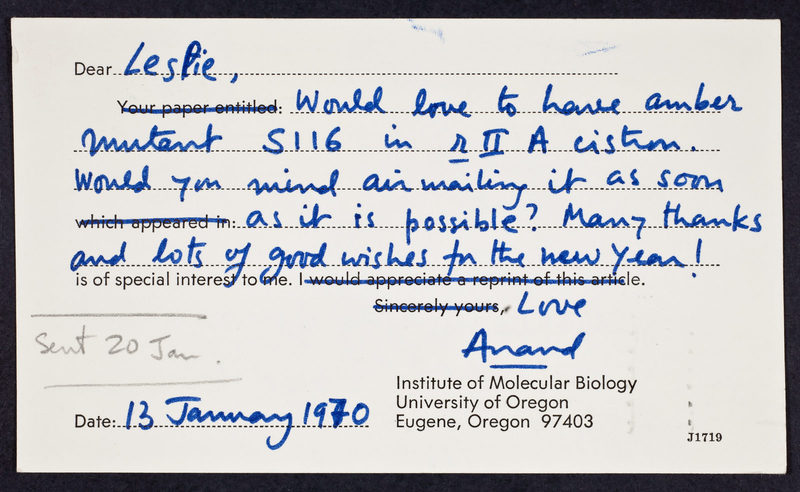 Dear Leslie,
Your paper entitled: Would love to have amber
mutant S116 in r II A cistron.
Would you mind airmailing it as soon
which appeared in: as it is possible? Many thanks
and lots of good wishes for the new year!
is of special interest to me. I would appreciate a reprint of this article.
Sincerely yours, Love
Anand
Sent 20 Jan.
Institute of Molecular Biology
University of Oregon
Date: 13 January 1970 Eugene, Oregon 97403
J1719